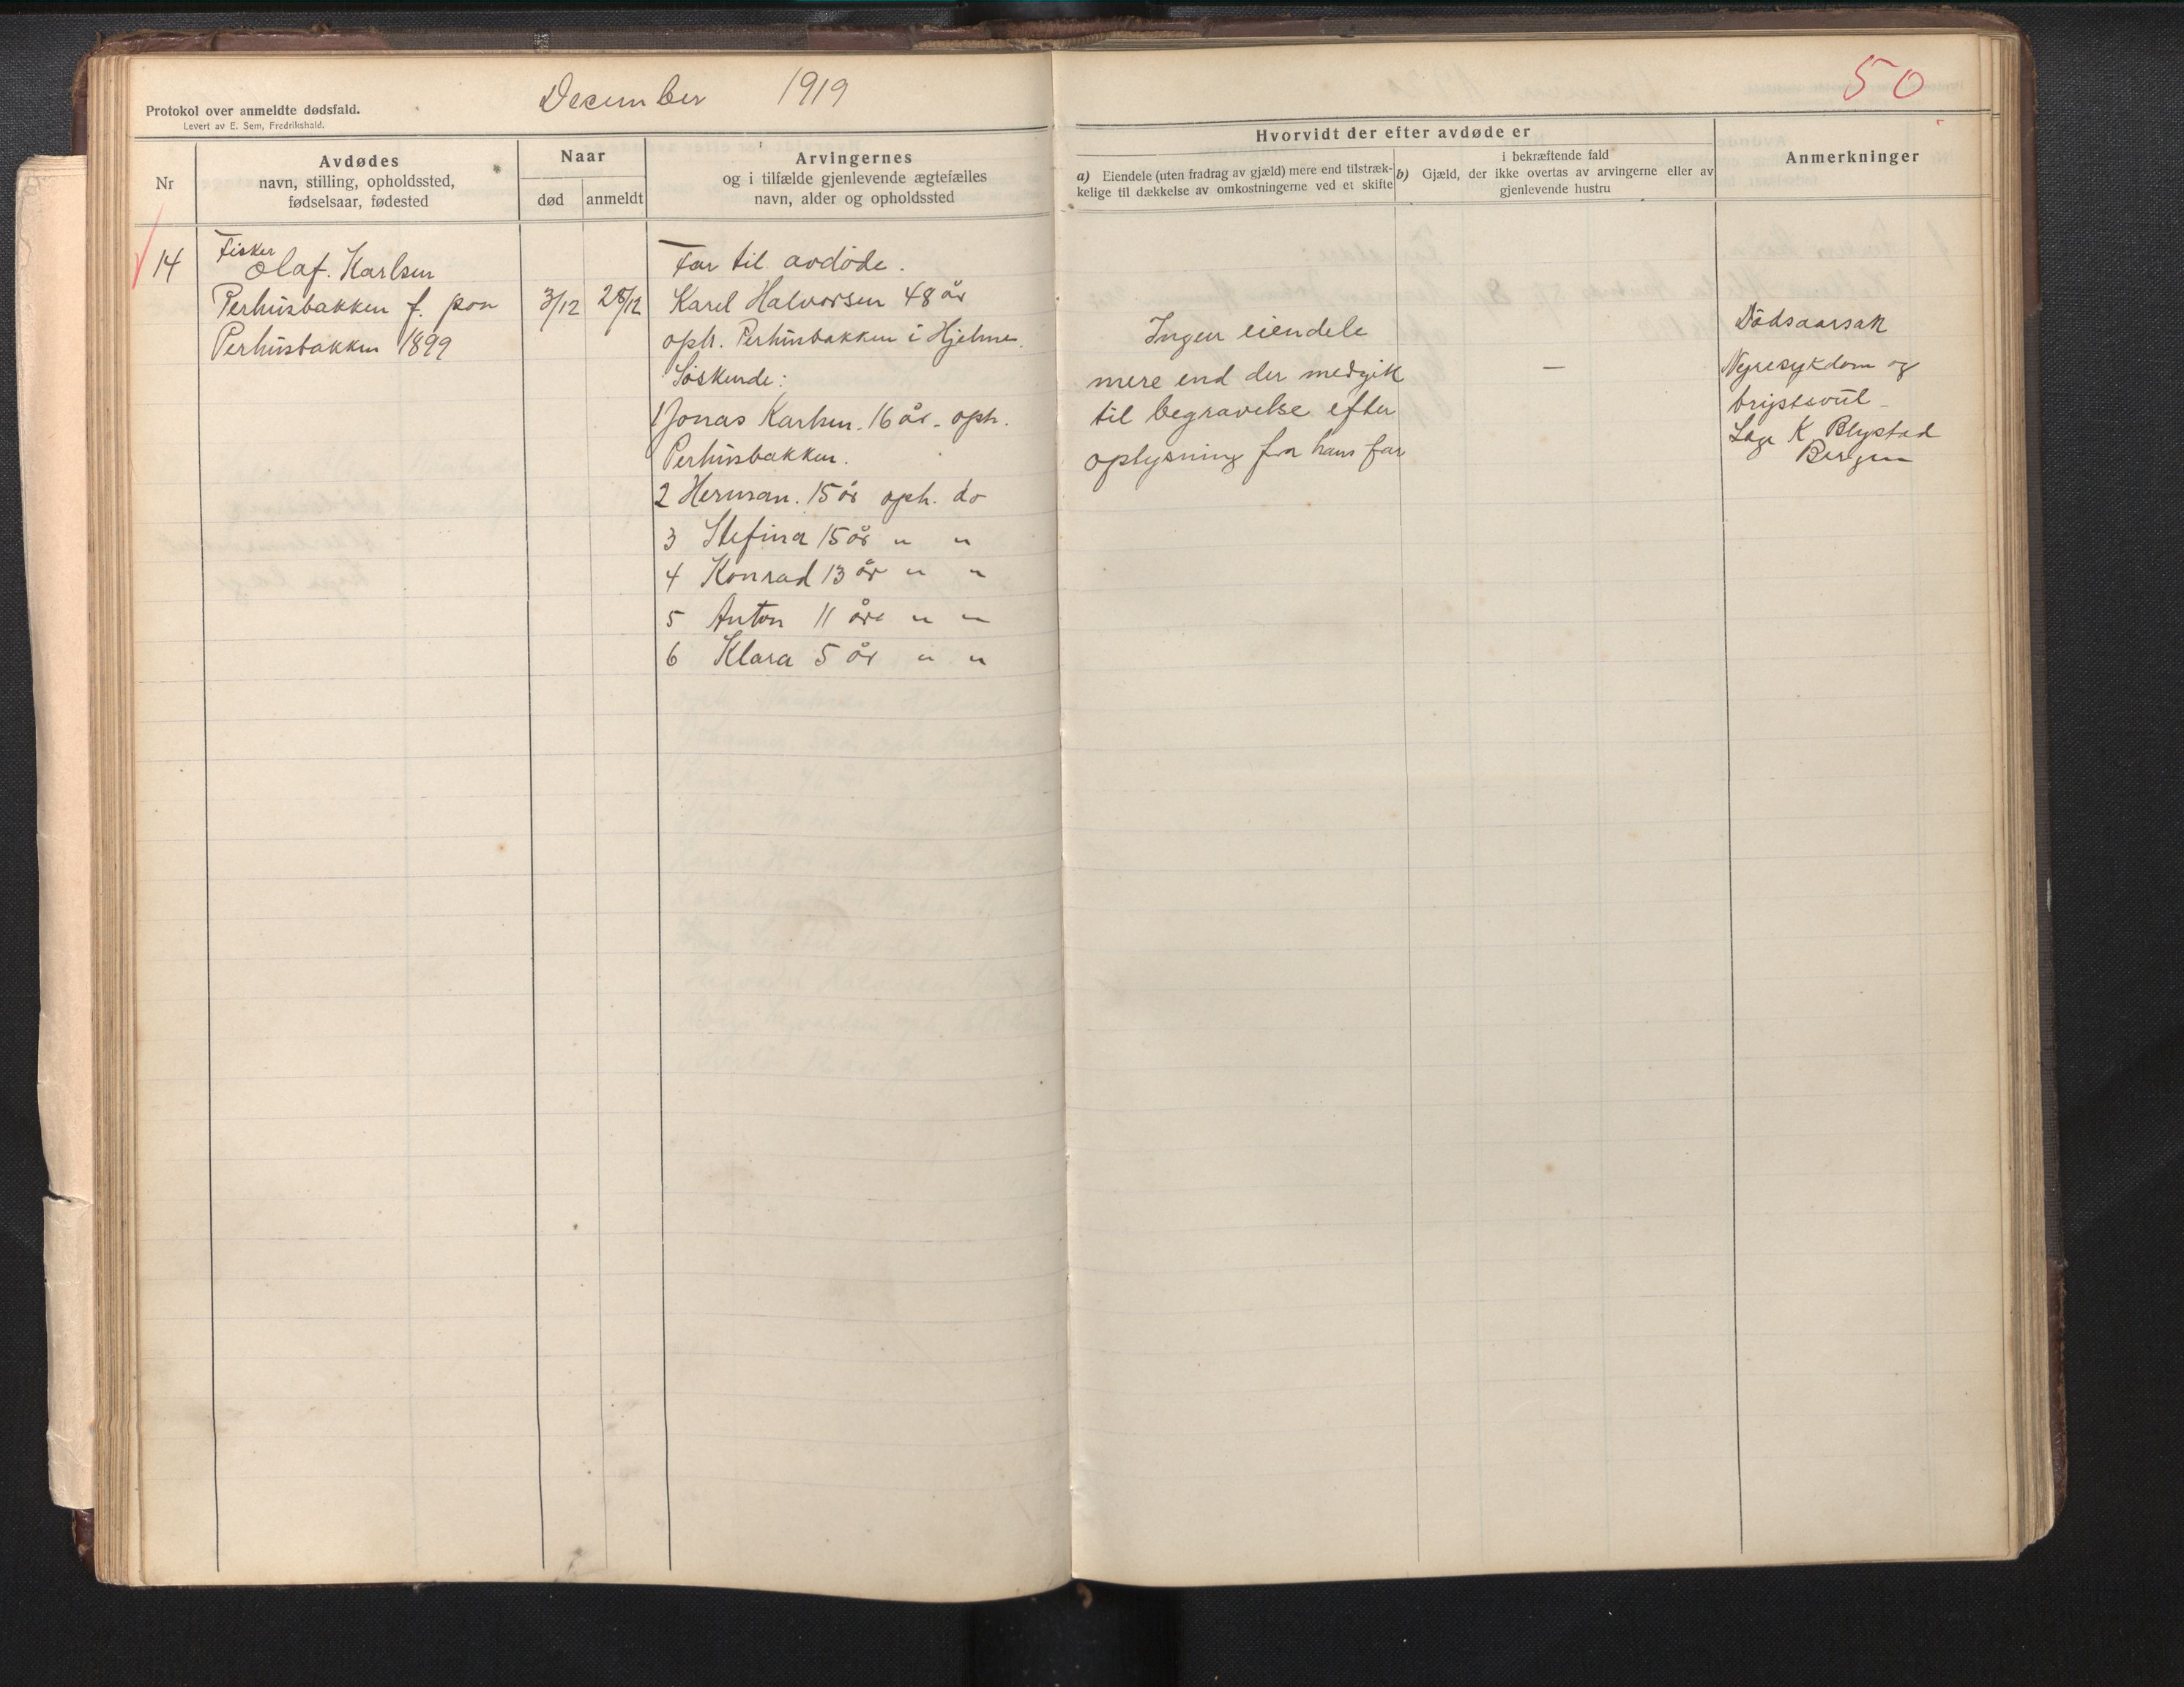 December 1919
50
Protokol over anmeldte dødsfald.
Levert av E. Sem, Fredrikshald.
Nr
Avdødes
navn, stilling, opholdssted,
fødselsaar, fødested
Naar
død
anmeldt
Arvingernes
og i tilfælde gjenlevende ægtefælles
navn, alder og opholdssted
Hvorvidt der efter avdøde er
a) Eiendele (uten fradrag av gjæld) mere end tilstræk-
kelige til dækkelse av omkostningerne ved et skifte
i bekræftende fald
b) Gjæld, der ikke overtas av arvingerne eller av
gjenlevende hustru
Anmerkninger
14
Fisker
Olaf. Karlsen
Perhusbakken f. paa
Perhusbakken 1899
3/12
28/12
Far til avdøde.
Karel Halvorsen 48 år
oph. Perhusbakken i Hjelme.
Søskende:
1 Jonas Karlsen. 16 år. oph.
Perhusbakken.
2 Herman. 15 år oph. do
3 Stefina 15 år " "
4 Konrad 13 år " "
5 Anton 11 år " "
6 Klara 5 år " "
Ingen eiendele
mere end der medgik
til begravelse efter
oplysning fra hans far
—
Dødsaarsak
Nyresykdom og
brystavul
Læge K Blystad
Bergen